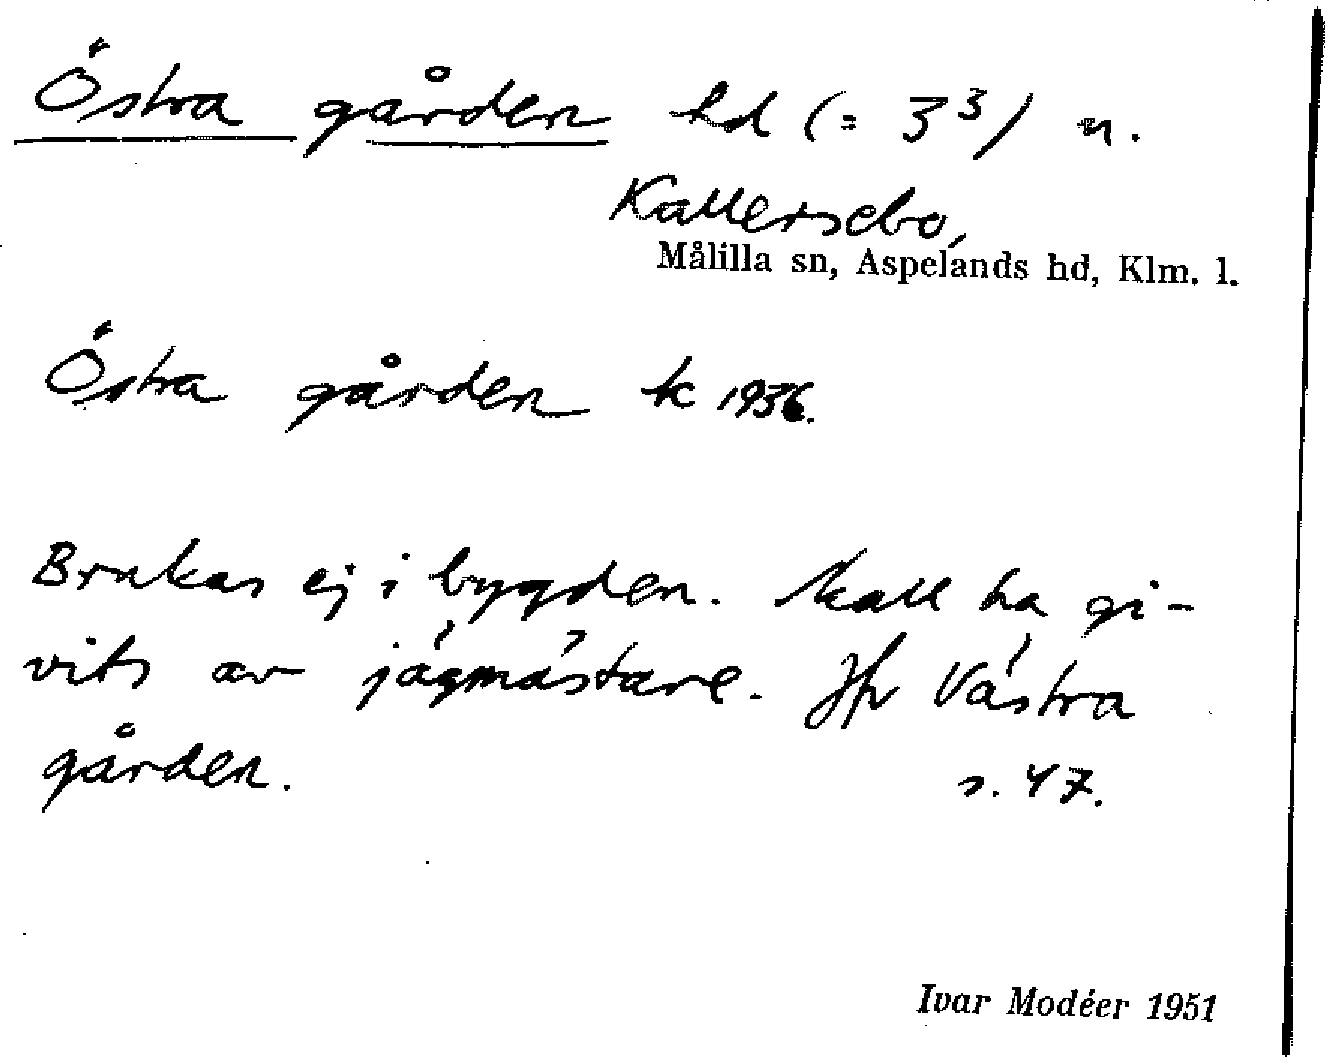 Östra gården hd (= 3³) n.
Kallersebo,
Målilla sn, Aspelands hd, Klm. l.
Östra gården k 1936.
Brukas ej i bygden. Skall ha gi-
vits av jägmästare. Jfr Västra
gården. s. 47.
Ivar Modéer 1951